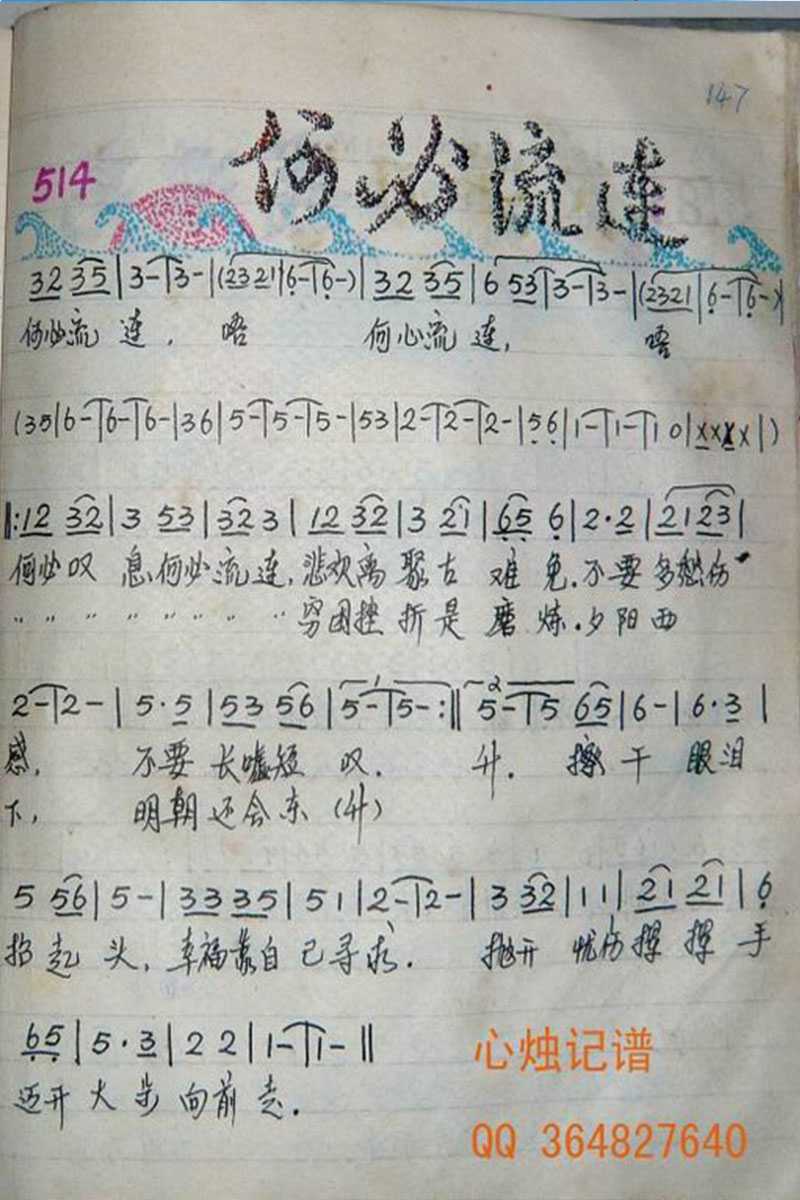 147
514 何必流连
32 35|3-|3-|(2321|6-|6-)|32 35|6 53|3-|3-|(2321|6-|6-)|
何必流 连, 唔 何心流 连, 唔
(35|6-|6-|6-|36|5-|5-|5-|53|2-|2-|2-|56|1-|1-|1 0|xxxx|)
‖:12 32|3 53|32 3|12 32|3 21|65 6|2·2|2123|
何必叹 息,何必流连,悲欢离 聚古 难 免.不要多愁伤
〃 〃 〃 〃 〃 〃 〃 〃 穷困挫 折是 磨 炼.夕阳西
2-|2-|5·5|53 56|1 5-|5-:‖2 5-|5 65|6-|6·3|
感, 不要 长嘘短 叹. 升. 擦 干 眼泪
下, 明朝还会东(升)
5 56|5-|33 35|51|2-|2-|3 32|11|21 21|6
抬 起 头, 幸福靠自 己寻求. 抛开 忧伤挥 挥 手
65|5·3|22|1-|1-‖
迈开 大 步 向前 走.
心烛记谱
QQ 364827640